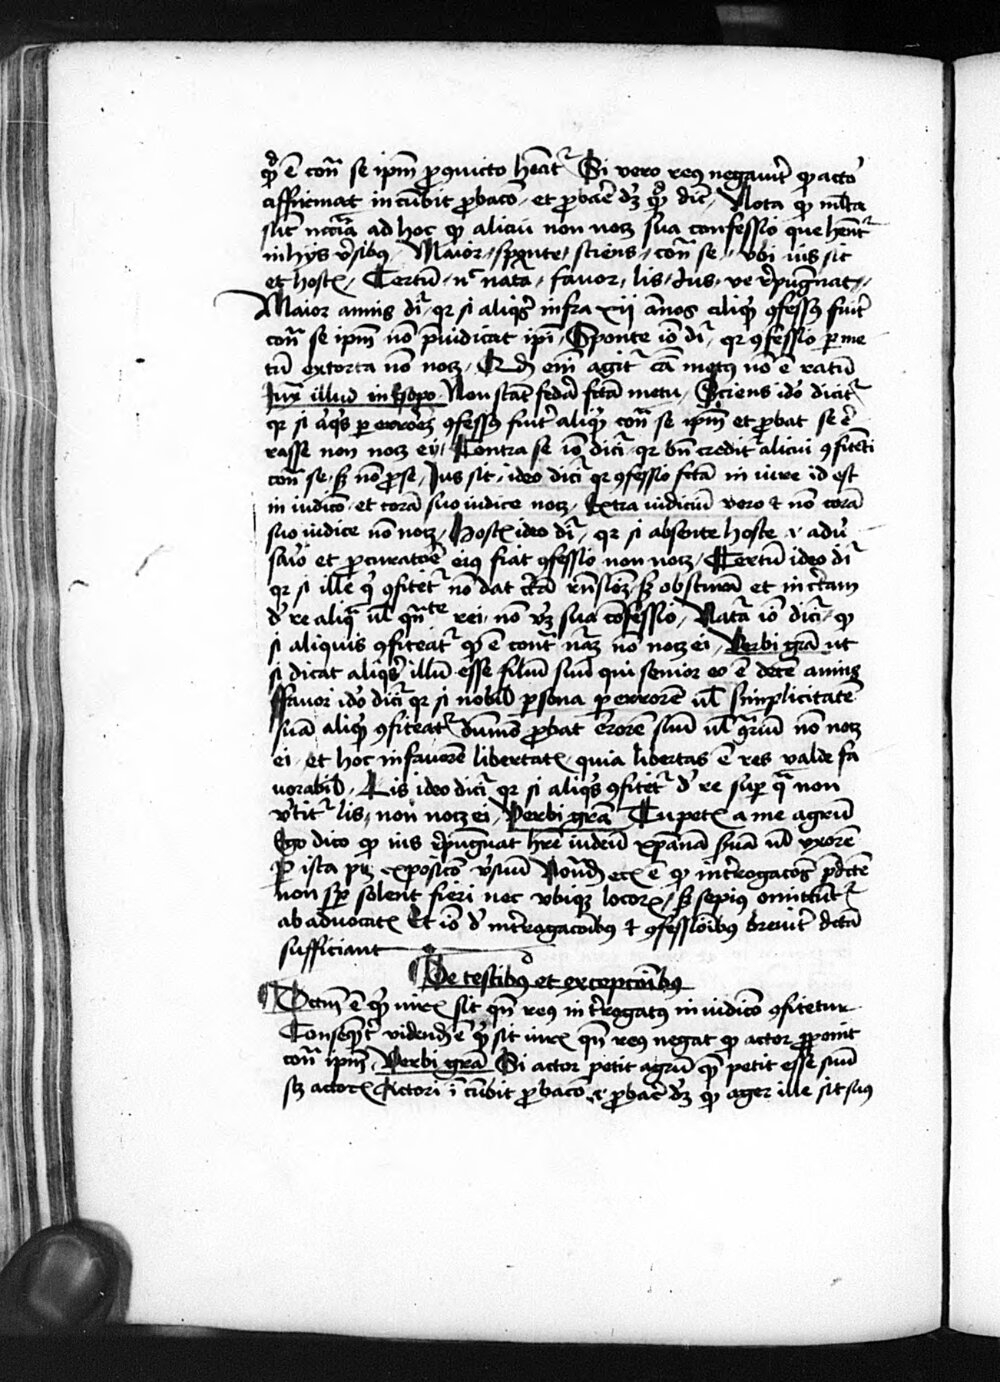 qd̄ ē con̄ se ipm̄ ꝓ quicto heat᷑ Si vero reꝰ negauer̄t qᷓ acto᷑
affirmat incūbit ꝓbaco᷑ et ꝓbare dꝫ qd̄ dic̄ Nota qᷓ mlta
sūt nccīa ad hoc qᷓ alicui non nocꝫ sua confessio que hent᷑
in hijs v̄sibꝰ Maior sponte sciens con̄ se vbi ius sit
et hostꝭ Certū nᶜ natā fauor lis Jus ve rep̄ugnat
Maior annis dr̄ qr si aliqͥs infra xii ānos aliqͥd ꝯfessꝰ fuit
con̄ se ipm̄ nō p̄iudicat ipi Sponte iō dr̄ qr ꝯfessio per me
tū extorta nō nocꝫ Qd̄ eni agit᷑ cā metꝰ nō ē ratū
Jux̄ illud in Esopo Non stāt federa fctā metu Sciens ido dicit᷑
qr si aliqͥs per errorē ꝯfessꝰ fuit aliqͥd con̄ se ipm̄ et ꝓbat se er
rasse non nocꝫ ei Contra se iō dicr̄ qr bn̄ credit᷑ alicui ꝯfitēti
con̄ se sꝫ nō ꝓ se Jus sit ideo dicr̄ qr ꝯfessio fctā in iure id est
in iudico et corā suo iudice nocꝫ Extra iudiciū vero et nō corā
suo iudice nō nocꝫ Hostꝭ ideo dr̄ qr si absente hoste et adu᷑
sario et ꝓcuratore eiꝰ fiat ꝯfessio non nocꝫ Certū ideo dr̄
qr si ille qͥ ꝯfitet᷑ nō dat certā rn̄sionē sꝫ obscurā et incertam
de re aliqᷓ ul̄ qn̄titate rei nō vꝫ sua cōfessio Natā iō dicr̄ qᷓ
si aliquis ꝯfiteat᷑ qd̄ ē cont̄ natā nō nocꝫ ei Verbi grā ut
si dicat aliqͥs illū esse filiū suū qui senior eo ē decē annis
Fauor ido dicr̄ qr si nobil̄ ꝑsona ꝑ errorē ul̄ simplicitatē
suā aliqͥd ꝯfiteat᷑ dūmō ꝓbat errorē suū ul̄ ꝯrariū nō nocꝫ
ei et hoc in fauorē libertatꝭ quia libertas ē res valde fa
uorabil̄ Lis ideo dicr̄ qr si aliqͥs ꝯfitet᷑ de re suꝑ qᷓ non
v̄tit᷑ lis non nocꝫ ei Verbi grā Tu petꝭ a me agrū
Ego dico qᷓ ius rep̄ugnat hr̄e iudeū xp̄ianā suā ul̄ vxorē
Per ista ptꝫ expositio v̄suū Notād̄ ecꝭ ē qᷓ interrogacoēs p̄dcte
non sꝑ solent fieri nec vbiqꝫ locorꝭ sꝫ sepius omittūt᷑
ab aduocatꝭ Et iō de interrogacoibꝰ et ꝯfessioibꝰ breuit̄ dcta
sufficiant
De testibꝰ et excepcoibꝰ
Dctm̄ ē qͥd iurꝭ sit qn̄ reꝰ interrogatꝰ in iudico ꝯfitetur
Conseqn̄t᷑ vidend̄ ē qͥd sit iurꝭ qn̄ reus negat qᷓ actor ꝓponit
con̄ ipm̄ Verbi grā Si actor petit agrū qm̄ petit esse suū
sꝫ actorꝭ Actori incūbit ꝓbaco et ꝓbare dꝫ qᷓ ager ille sit suus